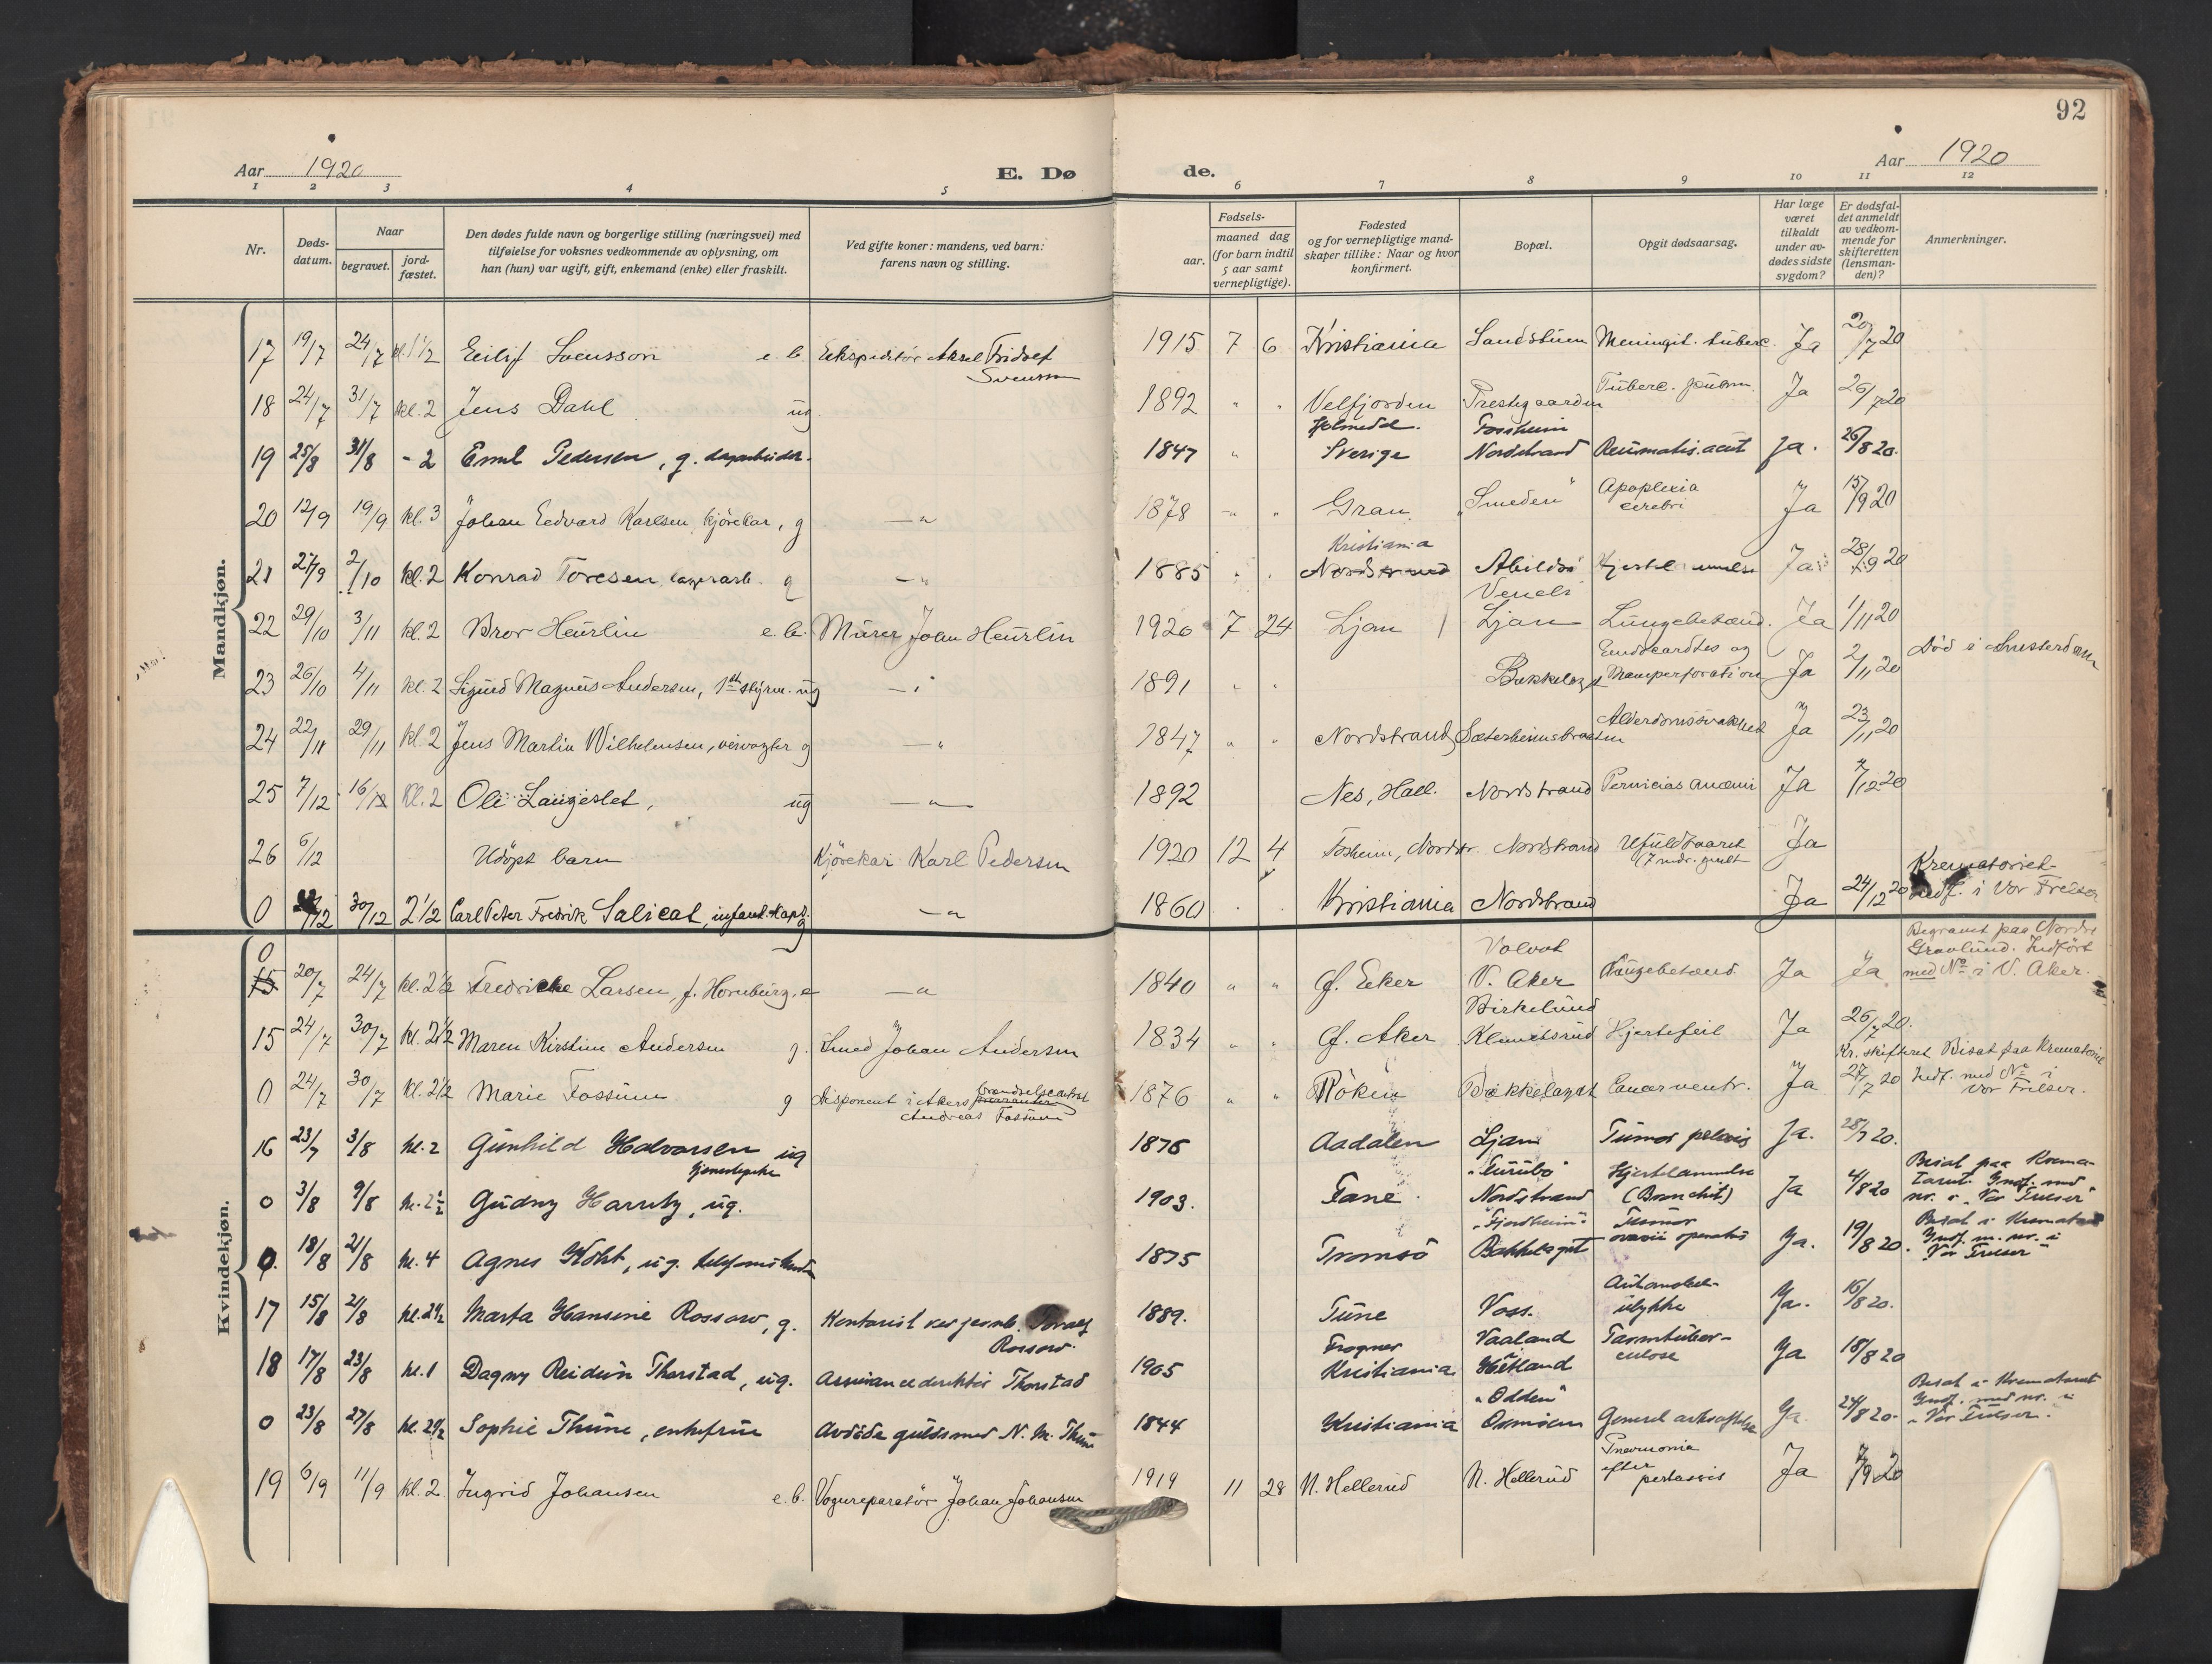 92
Aar 1920 E. Dø de. Aar 1920
1 2 3 4 5 6 7 8 9 10 11 12
Nr.
Døds-
datum.
Naar
begravet.
jord-
fæstet.
Den dødes fulde navn og borgerlige stilling (næringsvei) med
tilføielse for voksnes vedkommende av oplysning, om
han (hun) var ugift, gift, enkemand (enke) eller fraskilt.
Ved gifte koner: mandens, ved barn:
farens navn og stilling.
Fødsels-
aar.
maaned dag
(for barn indtil
5 aar samt
vernepligtige).
Fødested
og for vernepligtige mand-
skaper tillike: Naar og hvor
konfirmert.
Bopæl.
Opgit dødsaarsag.
Har læge
været
tilkaldt
under av-
dødes sidste
sygdom?
Er dødsfal-
det anmeldt
av vedkom-
mende for
skifteretten
(lensman-
den)?
Anmerkninger.
Mandkjøn.
17 19/7 24/7 kl. 1 1/2 Eilif Svensson e. b. Ekspeditör Aksel Fridtef Svensson 1915 7 6 Kristiania Sandstuen Meningit. tuberc. Ja 20/7 20
18 24/7 31/7 kl. 2 Jens Dahl ug 1892 " " Velfjorden Prestegaarden Tuberc. pulm. Ja 26/7 20
19 25/8 31/8 - 2 Emil Pedersen, g. dagarbeider. 1847 " Holmedal. Sverige Fossheim Nordstrand Reumatis. acut Ja. 26/8 20.
20 12/9 19/9 kl. 3 Johan Edvard Karlsen, kjörekar, g — " 1878 - " " Gran "Smeden" Apoplexia cerebri Ja 15/9 20
21 27/9 2/10 kl. 2 Konrad Toresen, lagerarb. g — " 1885 " " Kristiania Nordstrand Abildsö Hjertel mmelse Ja 28/9 20
22 29/10 3/11 kl. 2 Bror Heurlin e. b. Murer John Heurlin 1920 7 24 Ljan Ljan Lungebetænd. Ja 1/11 20
23 26/10 4/11 kl. 2 Sigurd Magnus Andersen, 1ste styrm. ug — " 1891 " " Bækkelaget Endocardtes og Ja 2/11 20 Död i Amsterdam
24 22/11 29/11 kl. 2 Jens Martin Wilhelmsen, veivogter g — " 1847 " " Nordstrand Sæterheimsbraaten Alderdomssvakhet Ja 23/11 20
25 7/12 16/12 kl. 2 Ole Laugeslet, ug — " — 1892 Nes, Hall. Nordstrand Pernicias anæmi Ja 7/12 20
26 6/12 Udöpt barn Kjörekar Karl Pedersen 1920 12 4 Fosheim, Nordstr. Nordstrand Ufuldbaaret (7 mdr. gmlt Ja
0 /12 30/12 2 1/2 Carl Peter Fredrik Salicat, infant. kapt. g — " 1860 " " Kristiania Nordstrand Ja 24/12 20 Krematoriet indf. i Vor Frelser
Kvindekjøn.
0 15 20/7 24/7 kl. 2 1/2 Fredricke Larsen, f. Hornburg, e — " 1840 " " Ö. Eker Volvat V. Aker Lungebetænd. Ja Ja Begravet paa Nordre Gravlund. Indfört med No i V. Aker.
15 24/7 30/7 kl. 2 1/2 Maren Kirstine Andersen g. Smed Johan Andersen 1834 " " Ö. Aker Birkelund Klemetsrud Hjertefeil Ja 26/7 20.
0 24/7 30/7 kl. 2 1/2 Marie Fossum g Disponent i Akers brændselcentral Andreas Fossum 1876 " " Röken Bækkelaget Cancer ventr. Ja Kr. skifteret 27/7 20 Bisat paa Krematoriet Indf. med No i Vor Frelser.
16 23/7 3/8 kl. 2 Gunhild Halvorsen ug tjenestepike 1876 Aadalen Ljan Tumor pelvis Ja. 28/7 20.
0 3/8 9/8 kl. 2 1/2 Gudny Harnitz, ug. 1903. Fane. "Furubo" Nordstrand Hjertelammelse (Bronchit) Ja 4/8 20 Bisat paa Krematoriet. Indf. med nr. i "Vor Frelser"
0. 18/8 21/8 kl. 4 Agnes Koht, ug. telefonistinde 1875 Tromsö "Fjordheim" Bækkelaget Tumor ovarii operatio Ja. 19/8 20. Bisat i Krematoriet Indf. m. nr. i "Vor Frelser"
17 15/8 21/8 kl. 2 1/2 Marta Hansine Rossow, g. Kontorist ved jernb. Toralf Rossow. 1889. Tune Voss. Automobil- ulykke Ja. 16/8 20.
18 17/8 23/8 kl. 1 Dagny Reidun Thorstad, ug. Assurancedirektör Thorstad 1905 Frogner Kristiania Vaaland Hetland Tarmtuber- culose Ja 18/8 20
0 23/8 27/8 kl. 2 1/2 Sophie Thune, enkefrue Avdöde guldsmed N. M. Thune 1844 Kristiania "Odden" Ormöen Generel Ja. 24/8 20. Bisat i Krematoriet Indf. med nr. i "Vor Frelser".
19 6/9 11/9 kl. 2 Ingrid Johansen e. b. Vognreparatör Johan Johansen 1919 11 28 N. Hellerud N. Hellerud Pneumonia efter pertussis Ja 7/9 20